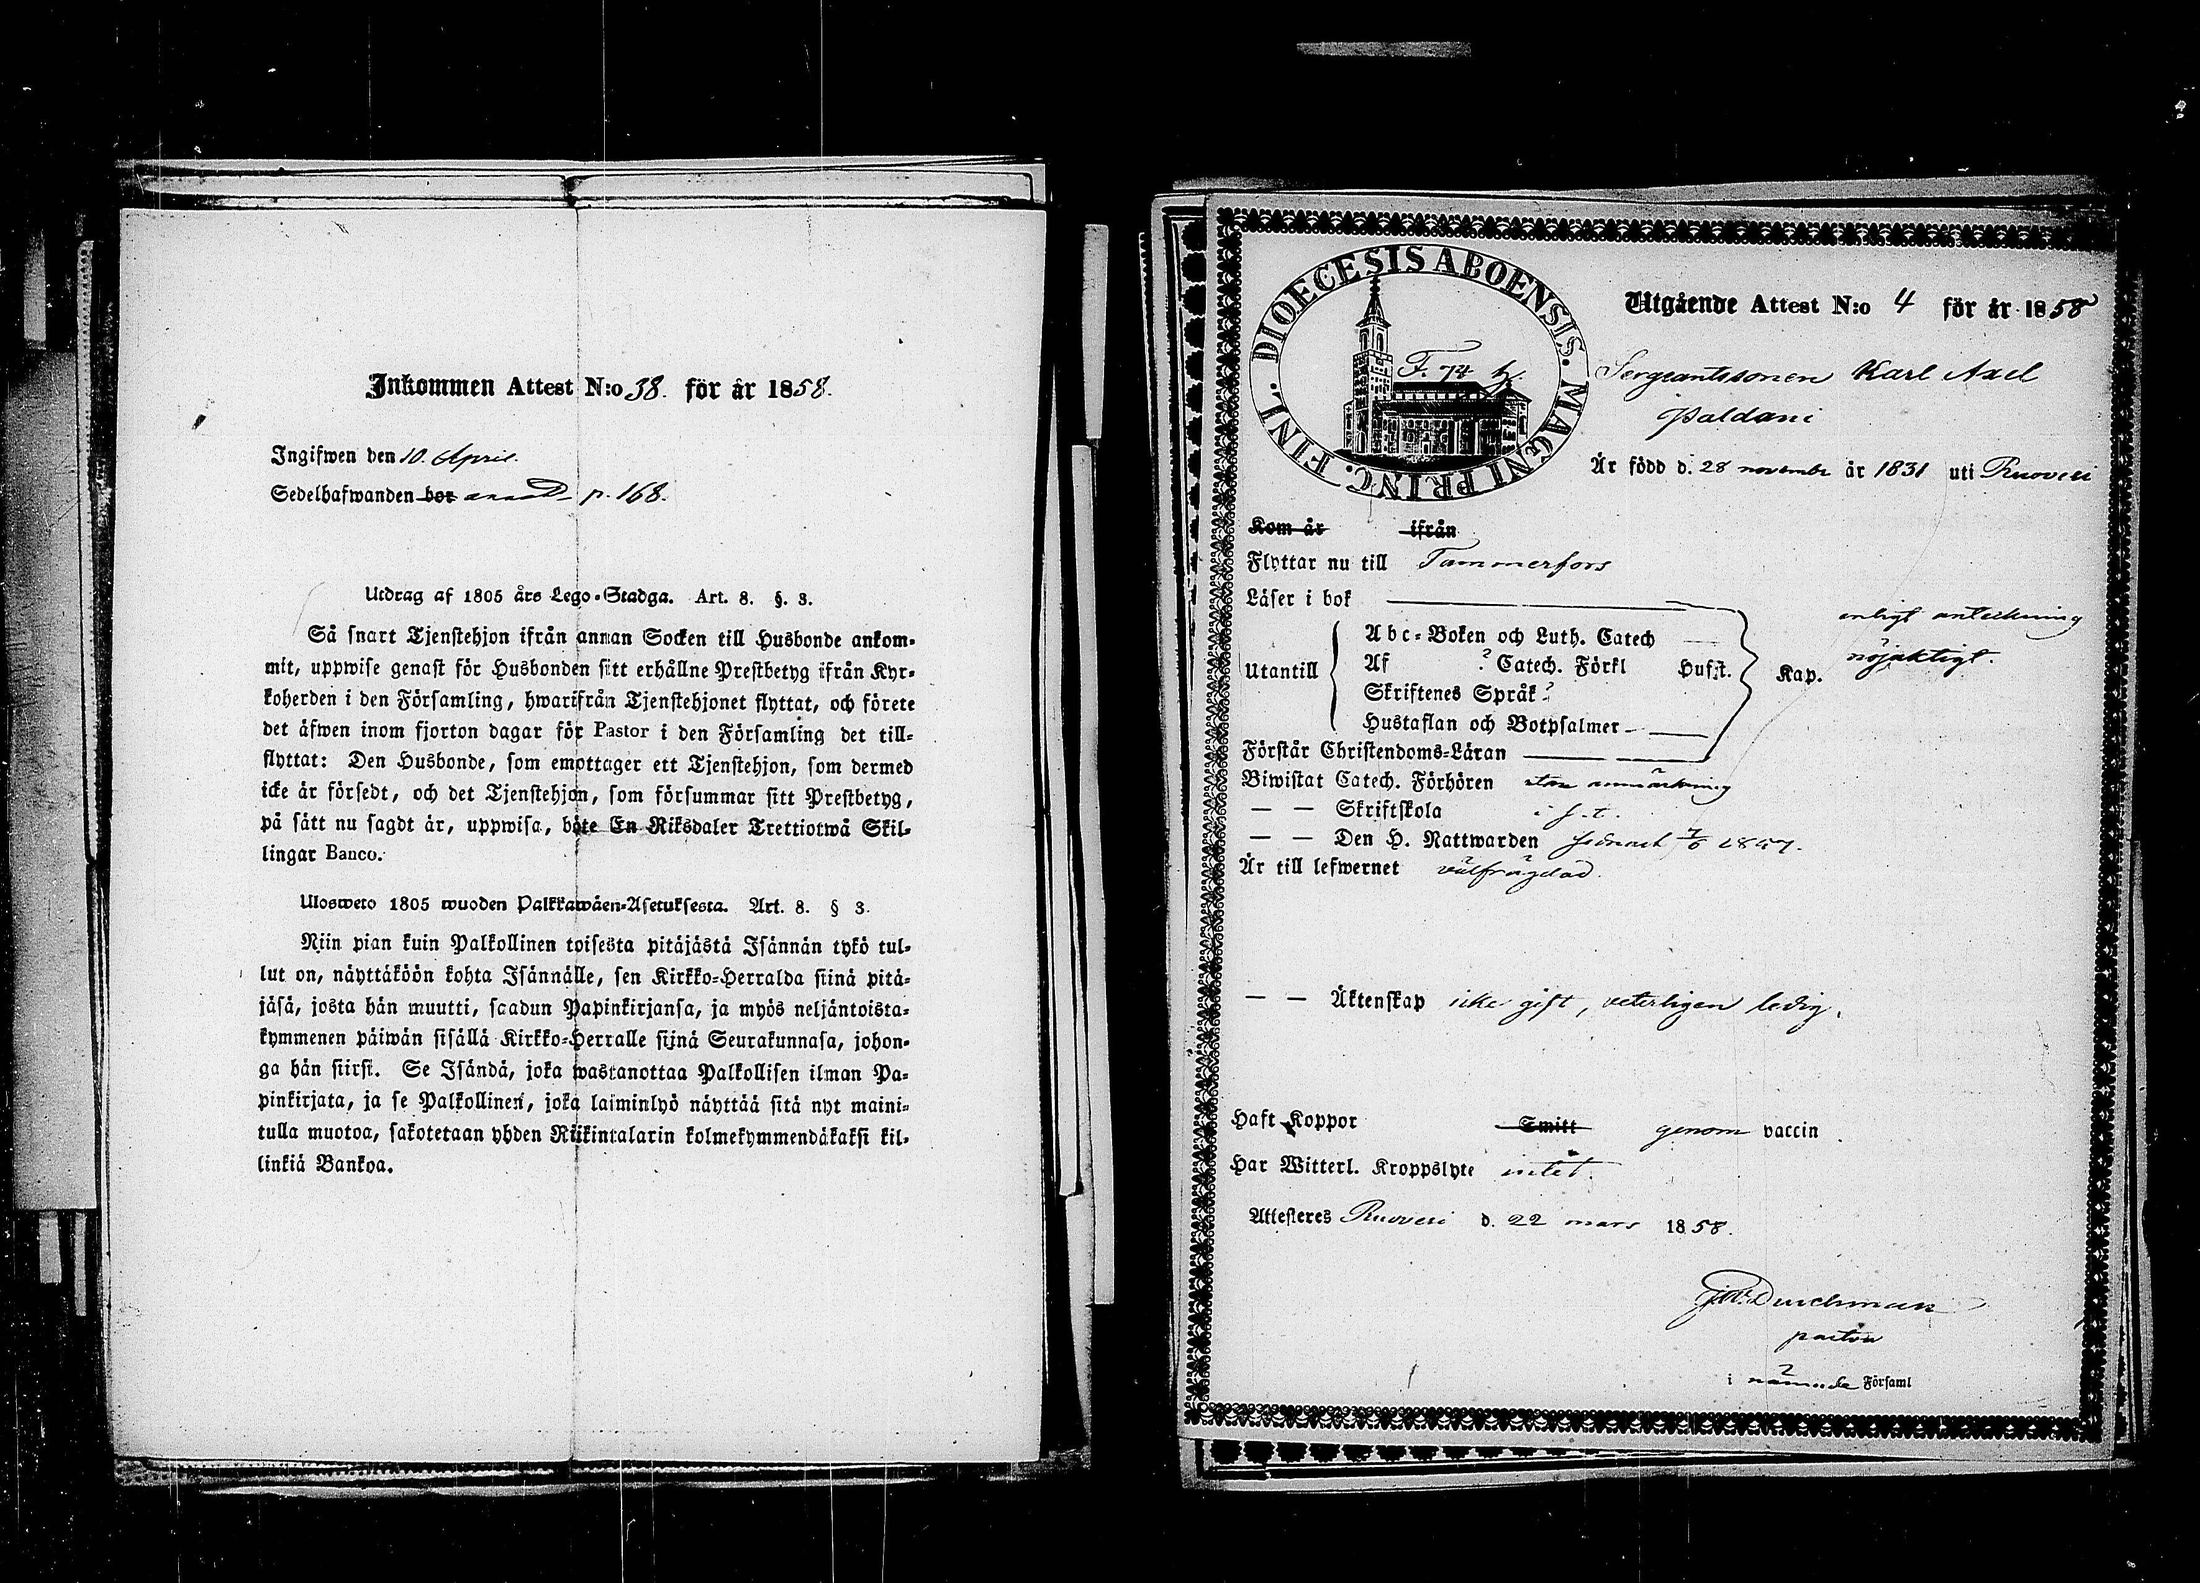 Inkommen Attest N:o 38. för år 1858.
Ingifwen den 10. April.
Sedelhafwanden bor p. 168.
Utdrag af 1805 års Lego-Stadga. Art. 8. §. 3.
Så snart Tjenstehjon ifrån annan Socken till Husbonde ankom-
mit, uppwise genast för Husbonden sitt erhållne Prestbetyg ifrån Kyr-
koherden i den Församling, hwarifrån Tjenstehjonet flyttat, och förete
det äfwen inom fjorton dagar för Pastor i den Församling det till-
flyttat: Den Husbonde, som emottager ett Tjenstehjon, som dermed
icke är försedt, och det Tjenstehjon, som försummar sitt Prestbetyg,
på sätt nu sagdt är, uppwisa, böte En Riksdaler Trettiotwå Skil-
lingar Banco.
Ulosweto 1805 wuoden Palkkawäen-Asetuksesta. Art. 8. § 3.
Niin pian kuin Palkollinen toisesta pitäjästä Isännän tykö tul-
lut on, näyttäköön kohta Isännälle, sen Kirkko-Herralda siinä pitä-
jäsä, josta hän muutti, saadun Papinkirjansa, ja myös neljäntoista-
kymmenen päiwän sisällä Kirkko-Herralle siinä Seurakunnasa, johon-
ga hän siirsi. Se Isändä, joka wastanottaa Palkollisen ilman Pa-
pinkirjata, ja se Palkollinen, joka laiminlyö näyttää sitä nyt maini-
tulla muotoa, sakotetaan yhden Riikintalarin kolmekymmendäkaksi kil-
linkiä Bankoa.
DIOECESIS ABOENSIS. MAGNI PRINC. FINL.
F. 74
Utgående Attest N:o 4 för år 1858
Sergeantssonen Karl Axel
Paldani
Är född d. 28 november år 1831 uti Ruovesi
Kom år ifrån
Flyttar nu till Tammerfors
Läser i bok
enligt anteckning
nöjaktigt.
Utantill
Abc-Boken och Luth. Catech
Af Catech. Förkl Husst. Kap.
Skriftenes Språk
Hustaflan och Botpsalmer
Förstår Christendoms-Läran
Biwistat Catech. Förhören utan anmärkning
— — Skriftskola i s. t.
— — Den H. Nattwarden senast 7/6 1857.
Är till lefwernet välfrägdad.
— — Äktenskap icke gift, veterligen ledig.
Haft Koppor Smitt genom vaccin
Har Witterl. Kroppslyte intet.
Attesteras Ruovesi d. 22 mars 1858.
Durchman
pastor
i nämnde Församl